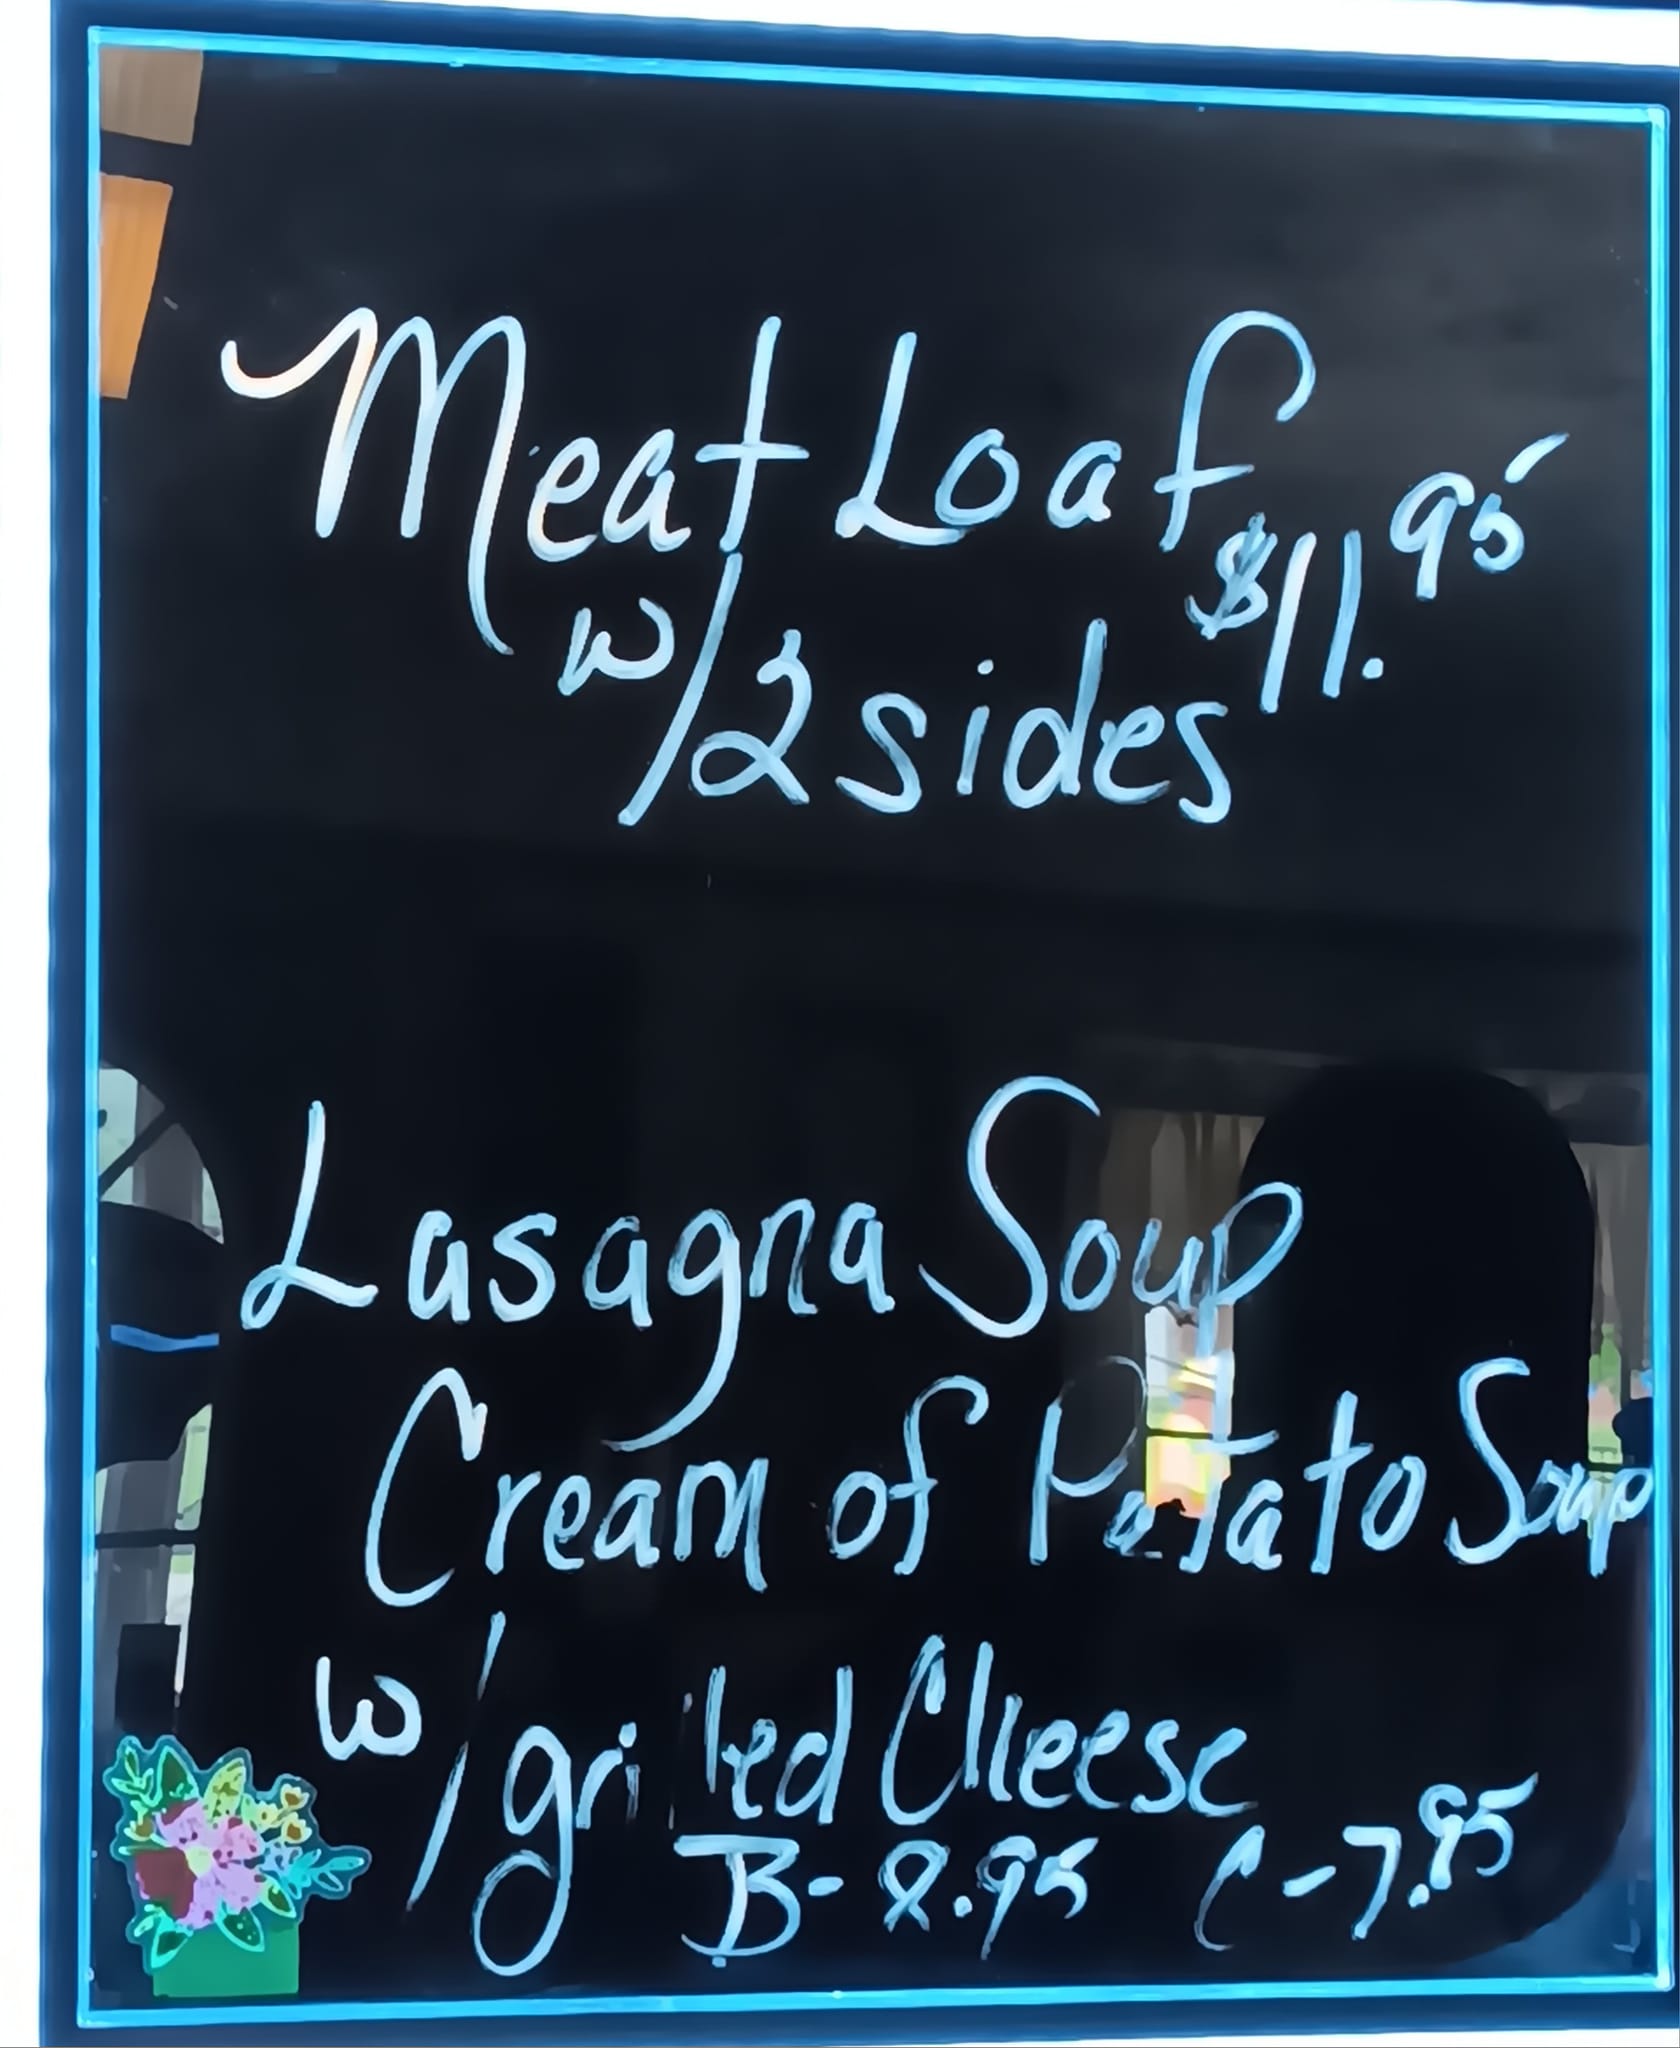 Meat Loaf $11.95
w/2 sides
Lasagna Soup
Cream of Potato Soup
w/grilled Cheese
B-8.95 C-7.95